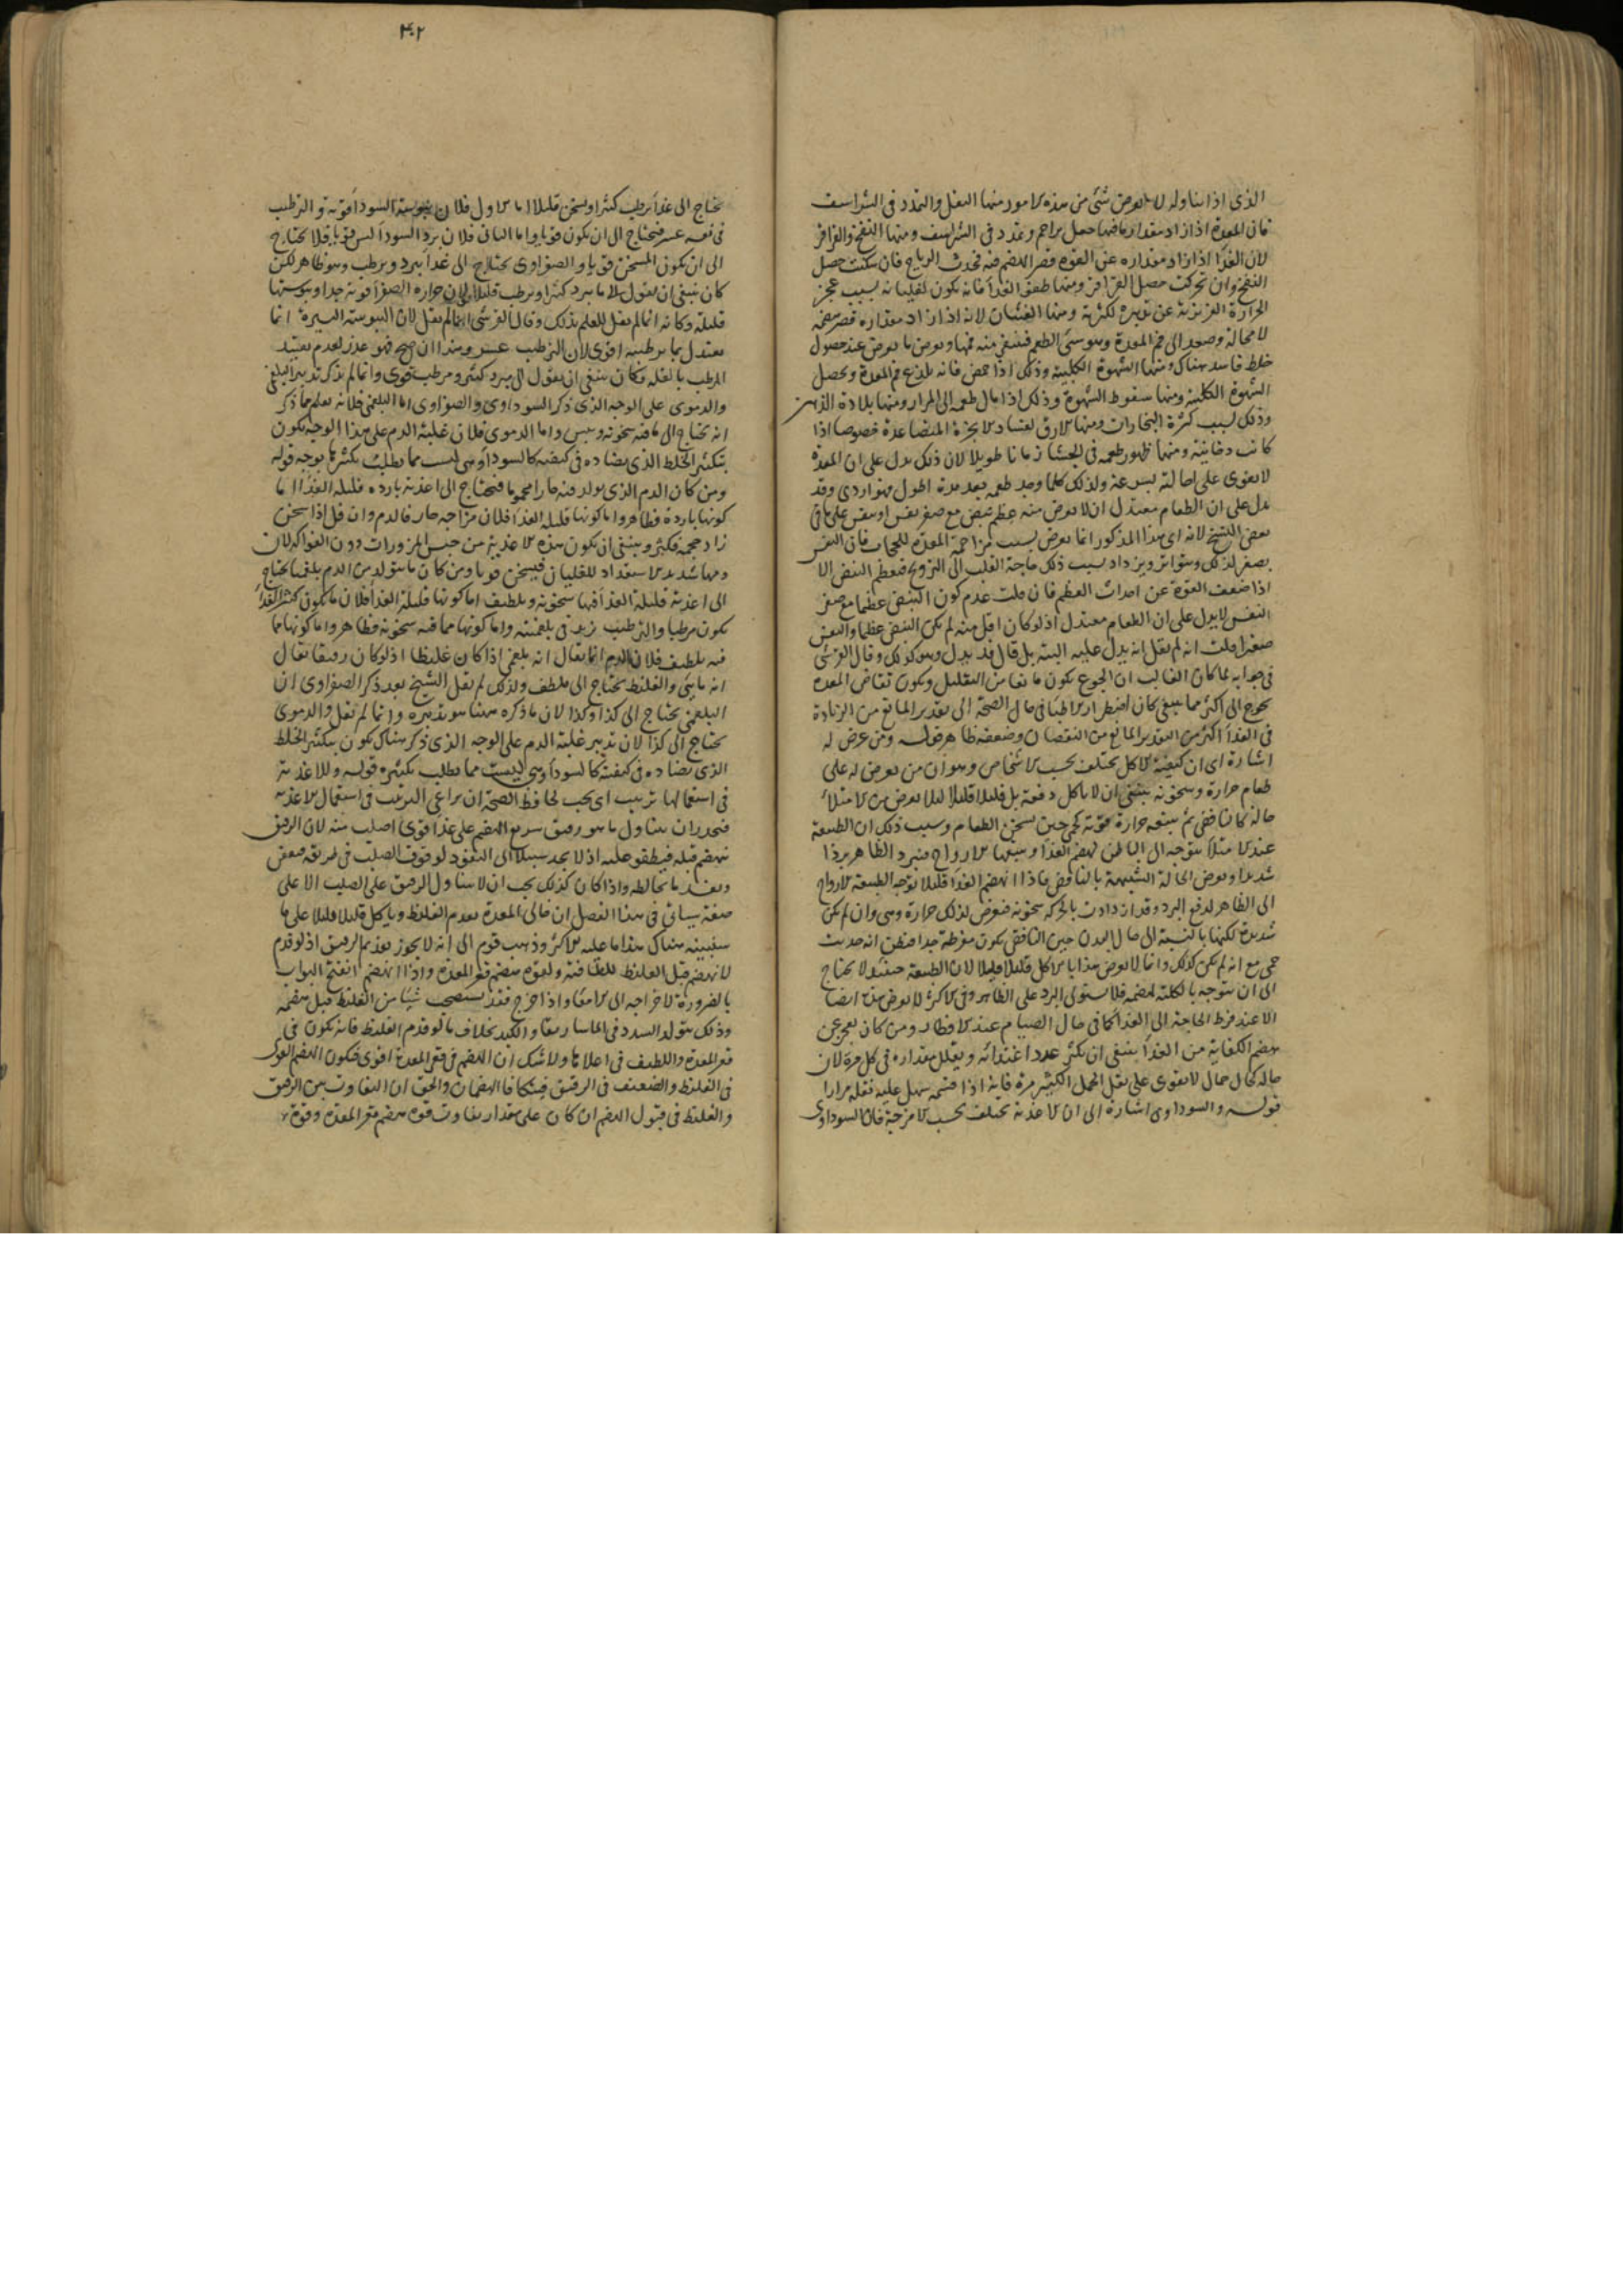 الذى اذا تناوله لا يعرض شئ من هذه الامور منها الثقل والتمدد فى الشراسيف
فان المعدة اذا زاد مقدار ما فيها حصل تزاحم وتمدد فى الشراسيف ومنها النفخ والقراقر
لان الغذا اذا زاد مقداره عن القوة قصر الهضم فيه فحدث الرياح فان سكنت حصل
النفخ وان تحركت حصل القراقر ومنها طفو الغذا فانه يكون لغليانه بسبب عجز
الحرارة الغريزية عن تدبيره لكثرته ومنها الغثيان لانه اذا زاد مقداره قصر هضمه
لا محالة وصعد الى فم المعدة وهو سئ الطعم فينقبض منه فمها ويعرض ما يعرض عند حصول
خلط فاسد هناك ومنها الشهوة الكلبية وذلك اذا حمض فانه يلذع فم المعدة ويحصل
الشهوة الكلبية ومنها سقوط الشهوة وذلك اذا مال طعمه الى المرار ومنها بلادة الذهن
وذلك لسبب كثرة البخارات ومنها الارق لفساد الابخرة المتصاعدة خصوصا اذا
كانت دخانية ومنها ظهور طعمه فى الجشا زمانا طويلا لان ذلك يدل على ان المعدة
لا تقوى على احالته بسرعة ولذلك كلما وجد طعمه بعد مدة اطول فهو اردى وقد
يدل على ان الطعام معتدل ان لا يعرض منه عظم نبض مع صغر نفس او نفس على ما فى
بعض النسخ لانه اى هذا المذكور انما يعرض بسبب مزاحمة المعدة للحجاب فان النفس
يصغر لذلك ويتواتر ويزداد بسبب ذلك حاجة القلب الى الترويح فيعظم النبض الا
اذا ضعفت القوة عن احداث العظم فان قلت عدم كون النبض عظيما مع صغر
النفس لا يدل على ان الطعام معتدل اذ لو كان اقل منه لم يكن النبض عظيما والنفس
صغيرا قلت انه لم يقل انه يدل عليه البتة بل قال قد يدل وهو كذلك وقال القرشى
فى جوابه لما كان الغالب ان الجوع يكون مانعا من التقليل ويكون تقاضى المعدة
يحوج الى اكثر مما ينبغى كان اضطرار الاطبا فى حال الصحة الى تقدير المانع من الزيادة
فى الغذا اكثر من التقدير المانع من النقصان وضعفه ظاهر قوله ومن عرض له
اشارة اى ان كيفية الاكل تختلف بحسب الاشخاص وهو ان من يعرض له على
طعام حرارة وسخونة ينبغى ان لا ياكل دفعة بل قليلا قليلا لئلا يعرض من الامتلا
حالة كالنافض ثم يتبعه حرارة قوية كحمى حين يسخن الطعام وسبب ذلك ان الطبيعة
عند الامتلا يتوجه الى الباطن لهضم الغذا ويتبعها الارواح فيبرد الظاهر بردا
شديدا ويعرض الحالة الشبيهة بالنافض فاذا انهضم الغذا قليلا توجه الطبيعة الارواح
الى الظاهر لدفع البرد وقد ازدادت بالحركة سخونة فيعرض لذلك حرارة وهى وان لم تكن
شديدة لكنها بالنسبة الى حال البدن حين النافض يكون مفرطة جدا فيظن انه حدثت
حمى مع انه لم يكن كذلك وانما لا يعرض هذا بالاكل قليلا قليلا لان الطبيعة حينئذ لا يحتاج
الى ان يتوجه بالكلية لهضمه فلا يستولى البرد على الظاهر وفى الاكثر لا يعرض هذا ايضا
الا عند فرط الحاجة الى الغذا كما فى حال الصيام عند الافطار ومن كان يعجز عن
هضم الكفاية من الغذا ينبغى ان يكثر عدد اغتذائه ويقلل مقداره فى كل مرة لان
حاله كحال حمال لا يقوى على نقل الحمل الكثير مرة فانه اذا قسمه سهل عليه نقله مرارا
قوله والسوداوى اشارة الى ان الاغذية تختلف بحسب الامزجة فان السوداوى
٣٠٢
يحتاج الى غذا يرطب كثيرا ويسخن قليلا اما الاول فلان يبوسة السودا قوية والترطيب
فى نفسه عسر فيحتاج الى ان يكون قويا واما الثانى فلان برد السودا ليس قويا فلا يحتاج
الى ان يكون المسخن قويا والصفراوى يحتاج الى غذا يبرد ويرطب وهو ظاهر لكن
كان ينبغى ان يقول الا ما يبرد كثيرا ويرطب قليلا لان حرارة الصفرا قوية جدا ويبوستها
قليلة وكانه انما لم يقل للعلم بذلك وقال القرشى انما لم يقل لان اليبوسة اليسيرة انما
يعتدل بما ترطيبه اقوى لان الترطيب عسر وهذا ان صح فهو عذر لعدم تقييد
المرطب بالقلة فكان ينبغى ان يقول الى مبرد كثير ومرطب قوى وانما لم يذكر تدبير البلغمى
والدموى على الوجه الذى ذكر السوداوى والصفراوى اما البلغمى فلانه يعلم مما ذكر
انه يحتاج الى ما فيه سخونة ويبس واما الدموى فلان غلبة الدم على هذا الوجه يكون
بتكثير الخلط الذى يضاده فى كيفيته كالسودا وهى ليست مما يطلب تكثرها بوجه قوله
ومن كان الدم الذى يولد فيه حارا محموما فيحتاج الى اغذية باردة قليلة الغذا اما
كونها باردة فظاهر واما كونها قليلة الغذا فلان مزاجه حار فالدم وان قل اذا سخن
زاد حجمه فكثر وينبغى ان يكون هذه الاغذية من جنس المزورات دون الفواكه لان
دمها شديد الاستعداد للغليان فيسخن قويا ومن كان ما يتولد من الدم بلغميا يحتاج
الى اغذية قليلة الغذا فيها سخونة وتلطيف اما كونها قليلة الغذا فلان ما يكون كثير الغذا
يكون مرطبا والترطيب يزيد فى بلغميته واما كونها مما فيه سخونة فظاهر واما كونها مما
فيه تلطيف فلان الدم انما يقال انه بلغمى اذا كان غليظا اذ لو كان رقيقا يقال
انه مائى والغليظ يحتاج الى ملطف ولذلك لم يقل الشيخ بعد ذكر الصفراوى ان
البلغمى يحتاج الى كذا وكذا لان ما ذكره ههنا هو تدبيره وانما لم يقل والدموى
يحتاج الى كذا لان تدبير غلبة الدم على الوجه الذى ذكر هناك يكون بتكثير الخلط
الذى يضاده فى كيفيته كالسودا وهى ليست مما يطلب تكثيره قوله وللاغذية
فى استعمالها ترتيب اى يجب لحافظ الصحة ان يراعى الترتيب فى استعمال الاغذية
فيحذر ان يتناول ما هو رقيق سريع الهضم على غذا قوى اصلب منه لان الرقيق
ينهضم قبله فيطفو عليه اذ لا يجد سبيلا الى النفوذ لوقوف الصلب فى طريقه فيعفن
ويفسد ما يخالطه واذا كان كذلك يجب ان لا يتناول الرقيق على الصلب الا على
صفة سياتى فى هذا الفصل ان خالى المعدة يقدم الغليظ وياكل قليلا قليلا على ما
سنبينه هناك هذا ما عليه الاكثر وذهب قوم الى انه لا يجوز تقديم الرقيق اذ لو قدم
لانهضم قبل الغليظ للطافته ولقوة هضم قعر المعدة واذا انهضم انفتح البواب
بالضرورة لاخراجه الى الامعا واذا خرج فقد يستصحب شيئا من الغليظ قبل هضمه
وذلك يتولد السدد فى الماساريقا والكبد بخلاف ما لو قدم الغليظ فانه يكون فى
قعر المعدة واللطيف فى اعلاها ولا شك ان الهضم فى قعر المعدة اقوى فيكون الهضم القوى
فى الغليظ والضعيف فى الرقيق فيتكافا الهضمان والحق ان التفاوت بين الرقيق
والغليظ فى قبول الهضم ان كان على مقدار تفاوت قوة هضم قعر المعدة وقوة